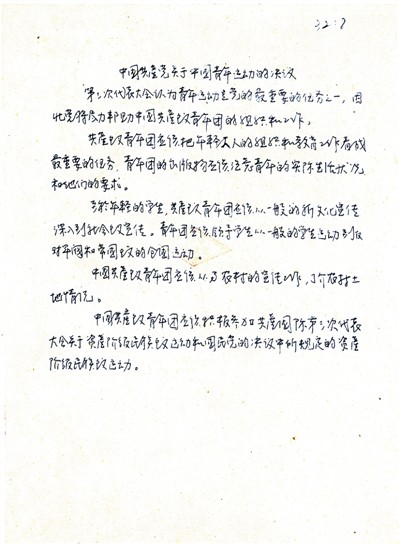 32:7
中国共产党关于中国青年运动的决议
第三次代表大会认为青年运动是党的最重要的任务之一,因
此党将尽力帮助中国共产主义青年团的组织和工作。
共产主义青年团应该把年轻工人的组织和教育工作看成
最重要的任务,青年团的出版物应该注意青年的实际生活状况
和他们的要求。
至于年轻的学生,共产主义青年团应该从一般的新文化宣传
深入到社会主义宣传。青年团应该领导学生从一般的学生运动到反
对军阀和帝国主义的全国运动。
中国共产主义青年团应该从事农村的宣传工作,了解农村土
地情况。
中国共产主义青年团应该积极参加共产国际第三次代表
大会关于资产阶级民族主义运动和国民党的决议中所规定的资产
阶级民族主义运动。